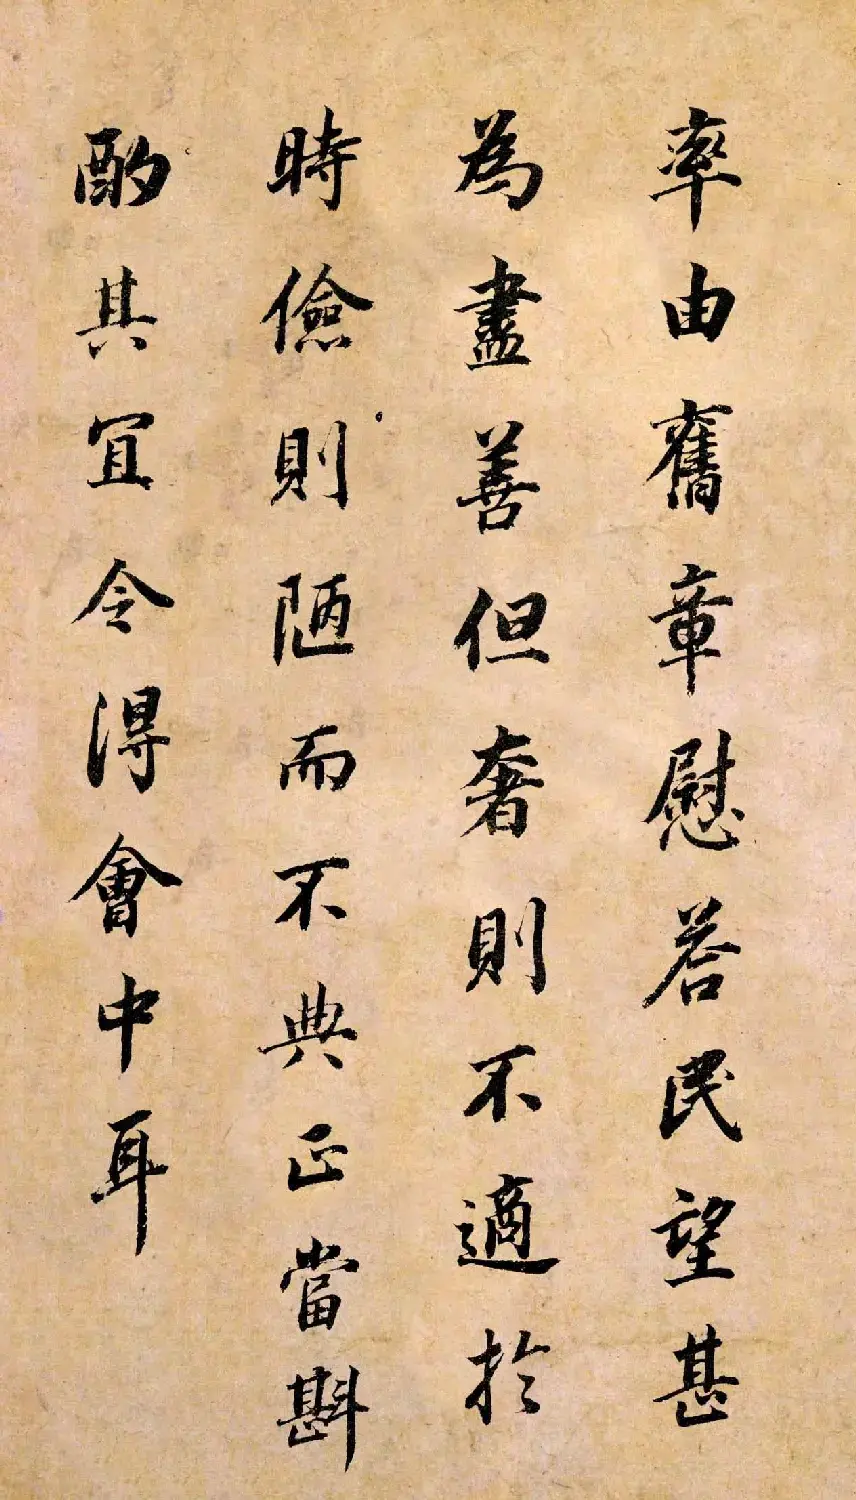 率由舊章慰荅民望甚
為盡善但奢則不適於
時儉則陋而不典正當斟
酌其宜令得會中耳